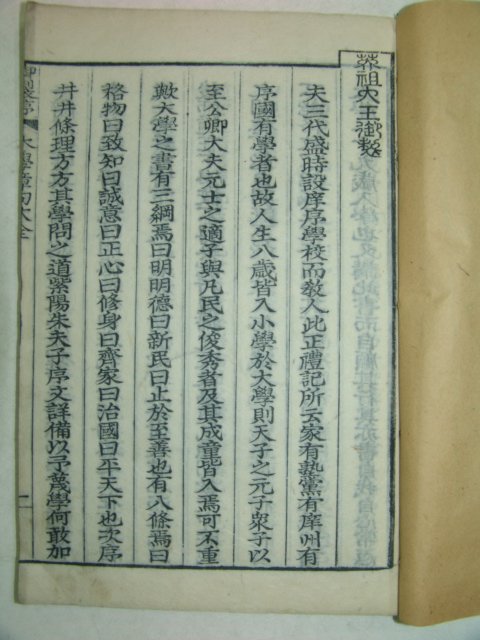 英祖大王御製
夫三代盛時設庠序學校而敎人此正禮記所云家有塾黨有庠州有
序國有學者也故人生八歲皆入小學於大學則天子之元子衆子以
至公卿大夫元士之適子與凡民之俊秀者及其成童皆入焉可不重
歟大學之書有三綱焉曰明明德曰新民曰止於至善也有八條焉曰
格物曰致知曰誠意曰正心曰修身曰齊家曰治國曰平天下也次序
井井條理方方其學問之道紫陽朱夫子序文詳備以予蔑學何敢加
御製序 大學章句大全 一